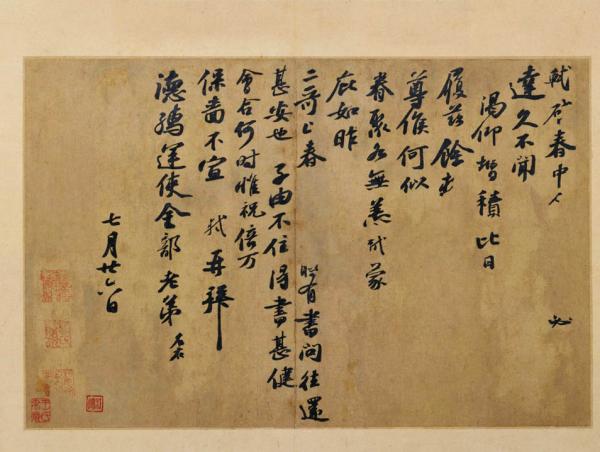 軾啓春中人必
達久不聞
渴仰增積比日
履茲餘
尊候何似
眷聚各無恙軾蒙
庇如昨
二哥上春時有書問往還
甚安也子由不住得書甚健
會合何時惟祝倍万
保嗇不宣軾再拜
德孺運使金部老弟
七月廿六日